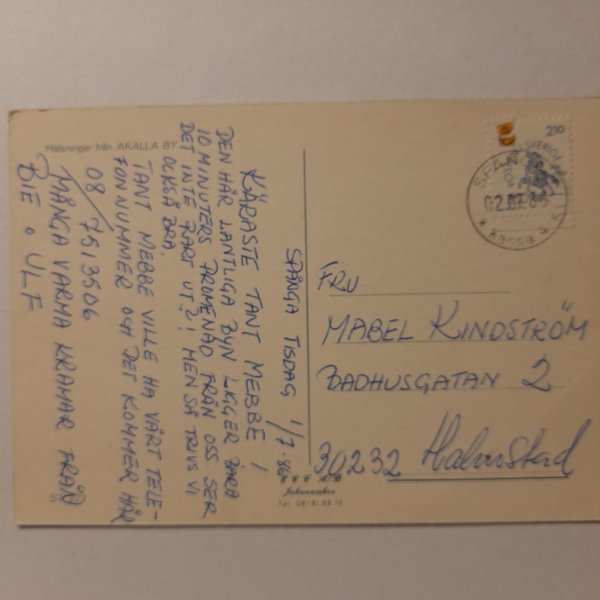 Hälsningar från AKALLA BY
SPÅNGA TISDAG 1/7-86
KÄRASTE TANT MEBBE!
DEN HÄR LANTLIGA BYN LIGGER BARA
10 MINUTERS PROMENAD FRÅN OSS SER
DET INTE RART UT?! MEN SÅ TRIVS VI
OCKSÅ BRA.
TANT MEBBE VILLE HA VÅRT TELE-
FONNUMMER OCH DET KOMMER HÄR
08/7513506
MÅNGA VARMA KRAMAR FRÅN
BIE o ULF
210
SVERIGE
SPÅNGA
FRU
MABEL KINDSTRÖM
BADHUSGATAN 2
30232 Halmstad
Tel. 08/